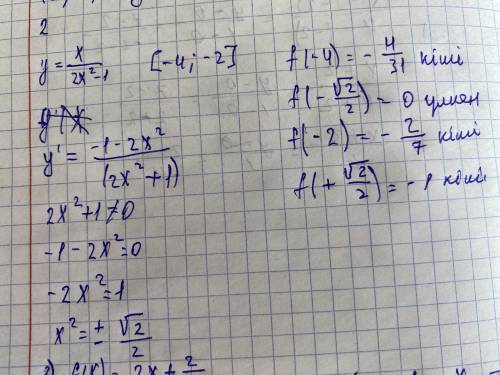 2
y = x / (2x² - 1)   [-4; -2]
y' = (-1 - 2x²) / (2x² + 1)
2x² + 1 ≠ 0
-1 - 2x² = 0
-2x² = 1
x² = ± √2 / 2
f(-4) = - 4/31 кіші
f(- √2/2) = 0 үлкен
f(-2) = - 2/7 кіші
f(+ √2/2) = -1 кіші
2) f(x) = 2x + 2